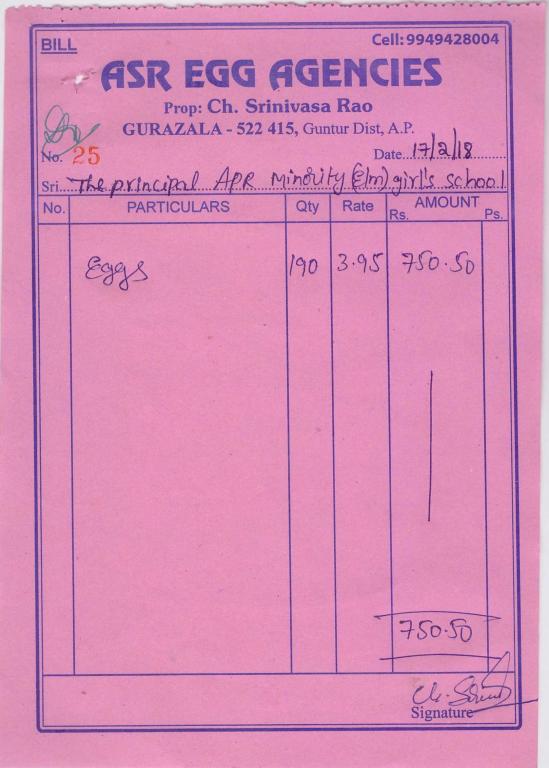 BILL
Cell: 9949428004
ASR EGG AGENCIES
Prop: Ch. Srinivasa Rao
GURAZALA - 522 415, Guntur Dist, A.P.
No. 25
Date 17/2/18
Sri. The principal APR Minority (E/m) girl's school
No. PARTICULARS Qty Rate AMOUNT
Rs. Ps.
Eggs 190 3.95 750.50
750.50
Signature